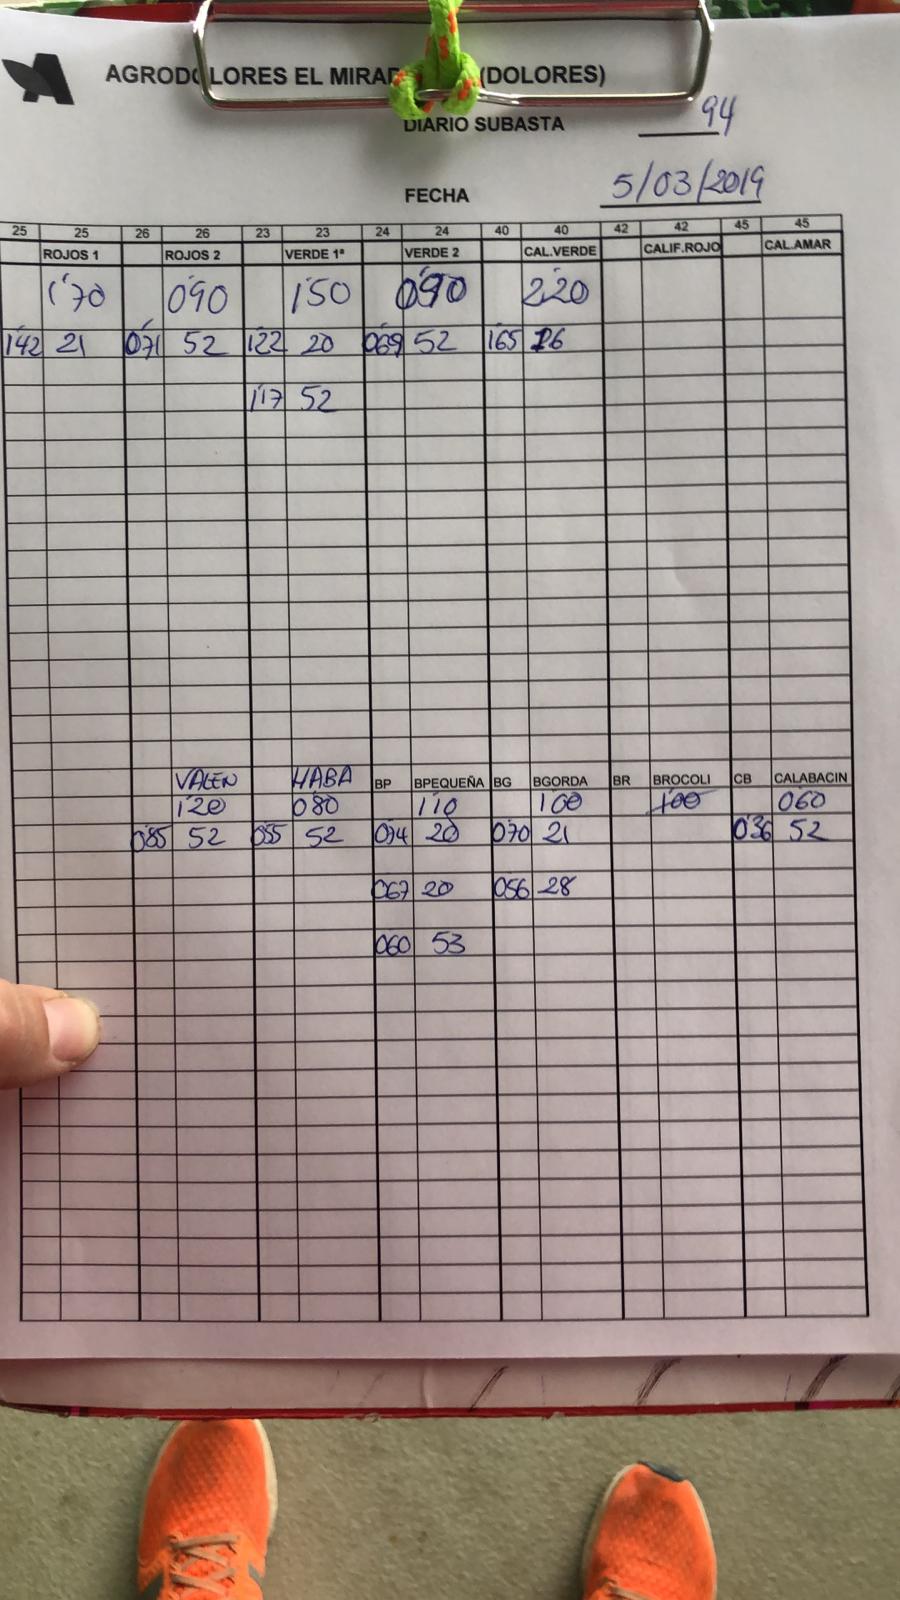 AGRODOLORES EL MIRAD (DOLORES)
DIARIO SUBASTA 94
FECHA 5/03/2019
25 25 26 26 23 23 24 24 40 40 42 42 45 45
ROJOS 1 ROJOS 2 VERDE 1ª VERDE 2 CAL.VERDE CALIF.ROJO CAL.AMAR
1'70 0'90 1'50 0'90 2'20
1'42 21 0'71 52 1'22 20 0'69 52 1'65 26
1'17 52
VALEN HABA BP BPEQUEÑA BG BGORDA BR BROCOLI CB CALABACIN
1'20 0'80 1'10 1'00 1'00 0'60
0'85 52 0'55 52 20 0'70 21 0'36 52
0'67 20 0'56 28
0'60 53